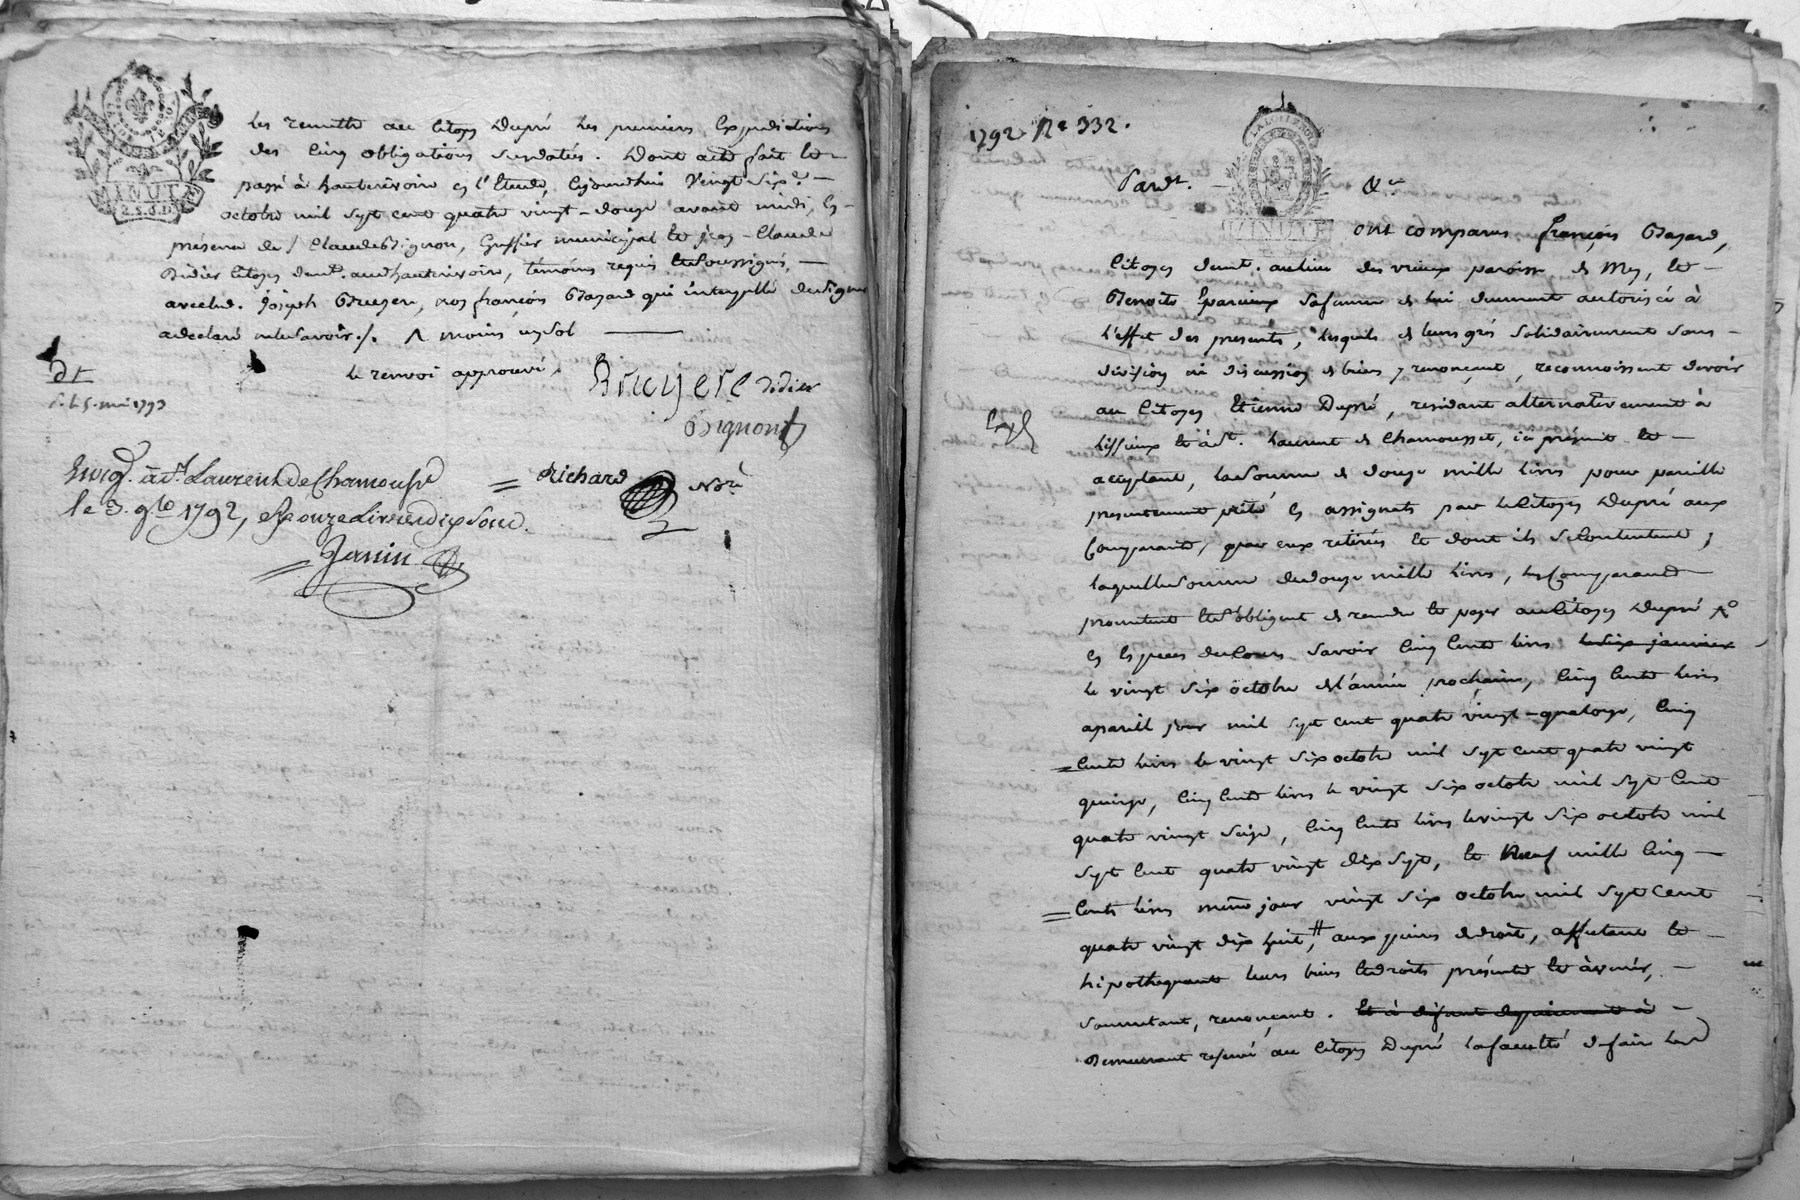 MINUTE
2. S. 6. D.
les remettre au Citoyen Dupré les premieres Expeditions
des Cinq obligations Susdatés. Dont acte fait et
passé à hauterivoire en l'Etude, Cejourdhuy Vingt Six
octobre mil sept cent quatre vingt-douze avant midi, En
présence de Claude Bignon, Greffier municipal et jean-Claude
Didier Citoyen demt. audhauterivoire, témoins requis et Soussignés,
avecled. Joseph Bruyere, non françois Bazard qui interpellé designer
adeclaré nelesavoir ./.
le renvoi approuvé,
Bruyere Didier
Bignon
dt
1793
Enreg. à St Laurent de Chamousset
le 3. 9bre 1792, Onze Livres dix Sous.
Richard Nore
Janin
1792 No 332.
LA LOI LE ROI
MINUTE
Pardt. &c
ont comparus françois Bazard,
Citoyen demt. aulieu des vieux paroisse de Mey, et
Benoite Sparcieux Safemme de lui duement autorisée à
L'effet des presentes, Lesquels de leurs grés Solidairement Sans
division ni discussion de biens y renonçant, reconnoissent devoir
au Citoyen Etienne Dupré, residant alternativement à
Lissieux et à St. Laurent de Chamousset, ici présent et
acceptant, la Somme de douze mille livres pour pareille
presentement prêté en assignats par le Citoyen Dupré aux
Comparants, par eux retirées et dont ils Se Contentent;
laquelle Somme de douze mille livres, les Comparants
promettent et s'obligent de rendre et payer au Citoyen Dupré
en Especes de Cours Savoir Cinq Cents livres le six janvier
le vingt Six octobre de l'année prochaine, Cinq Cents livres
apareil jour mil sept cent quatre vingt-quatorze, Cinq
Cents livres le vingt Six octobre mil sept cent quatre vingt
quinze, Cinq Cents livres le vingt Six octobre mil sept Cent
quatre vingt Seize, Cinq Cents livres le vingt Six octobre mil
sept Cent quatre vingt dix sept, et Neuf mille Cinq
Cents livres même jour vingt Six octobre mil sept Cent
quatre vingt dix huit, aux peines de droit, affectant et
hipothequant leurs biens et droits présents et àvenir,
Soumettant, renonçant. Et à défaut de paiement à
Demeurant reservé au Citoyen Dupré la faculté de faire